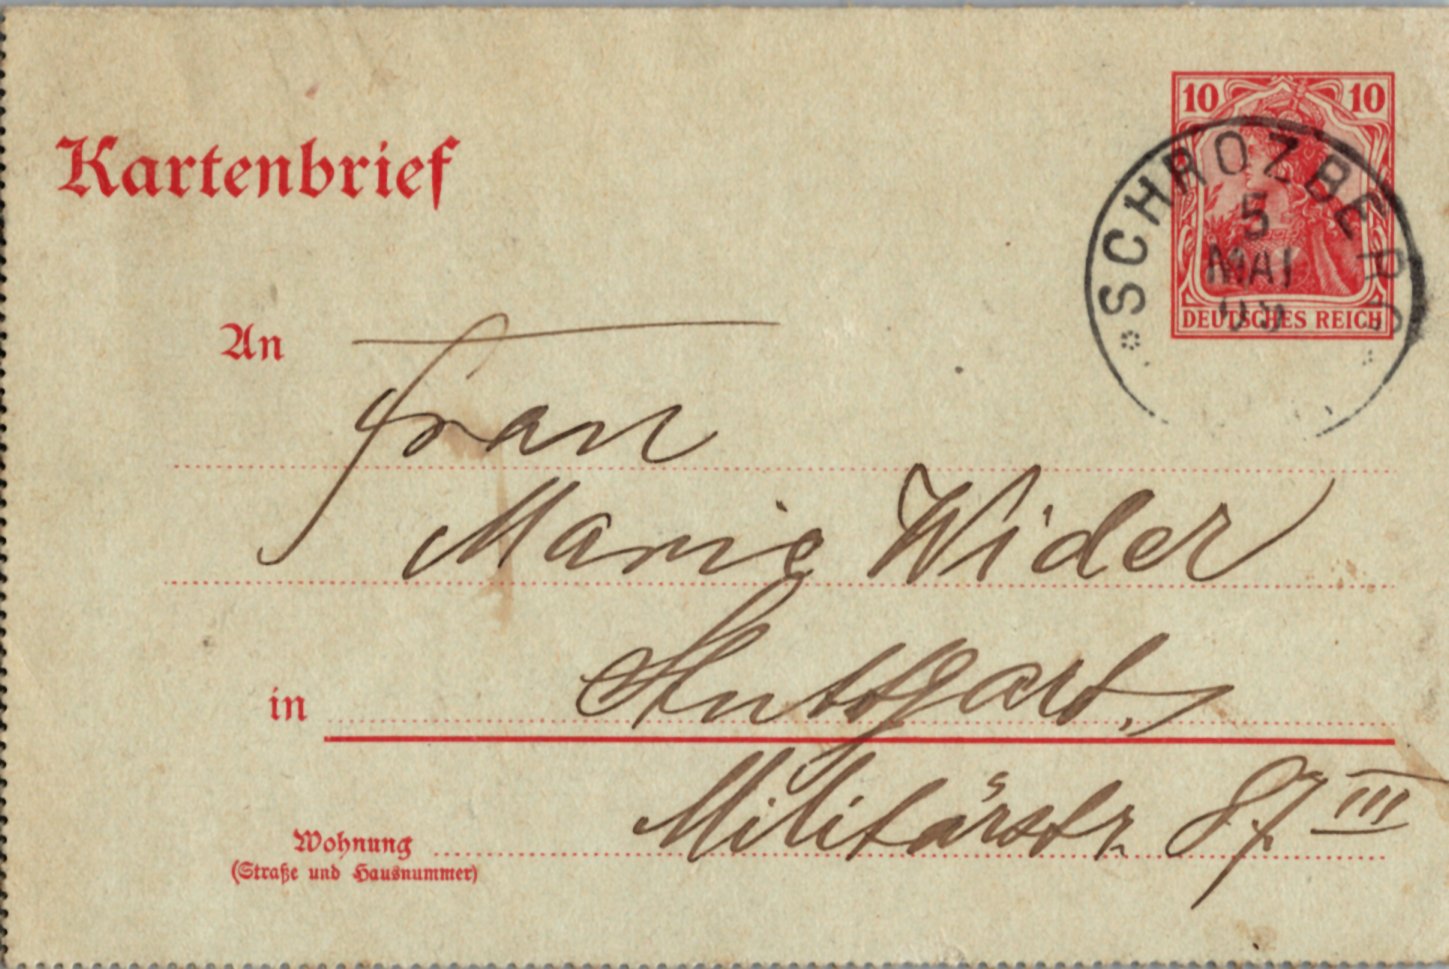 Kartenbrief
10 10
SCHROZBERG
5
MAI
09
DEUTSCHES REICH
An
Frau
Marie Wider
in Stuttgart,
Militärstr. 87 III
Wohnung
(Straße und Hausnummer)